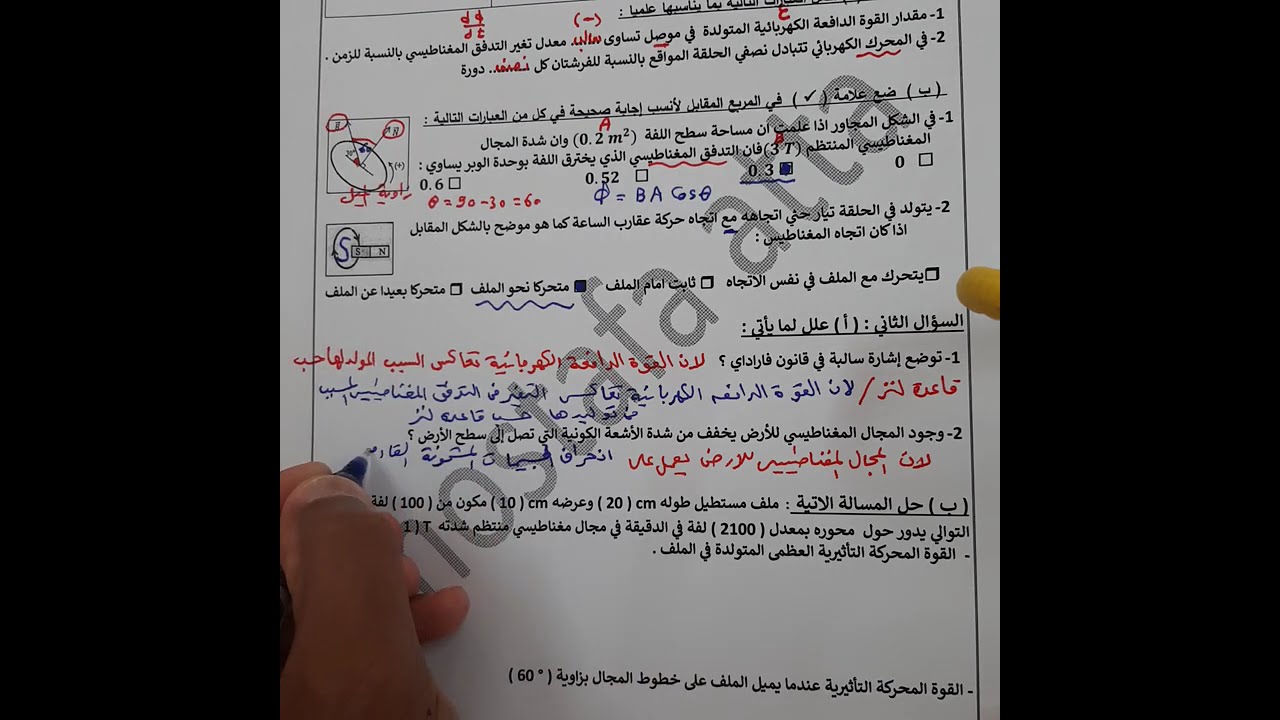 العبارات التالية بما يناسبها علميا :
1- مقدار القوة الدافعة الكهربائية المتولدة في موصل تساوى سالب معدل تغير التدفق المغناطيسي بالنسبة للزمن .
(-)
dϕ
dt
ε
2- في المحرك الكهربائي تتبادل نصفي الحلقة المواقع بالنسبة للفرشتان كل نصف.. دورة
( ب ) ضع علامة ( ✓ ) في المربع المقابل لأنسب إجابة صحيحة في كل من العبارات التالية :
1- في الشكل المجاور اذا علمت أن مساحة سطح اللفة (0.2 m²) وان شدة المجال
A
المغناطيسي المنتظم (3 T) فان التدفق المغناطيسي الذي يخترق اللفة بوحدة الوبر يساوي :
B
0 0.3 0.52 0.6
(+)
ϕ = BA Cosθ
θ = 90 - 30 = 60
زاوية
2- يتولد في الحلقة تيار حثي اتجاهه مع اتجاه حركة عقارب الساعة كما هو موضح بالشكل المقابل
اذا كان اتجاه المغناطيس :
S S N
يتحرك مع الملف في نفس الاتجاه ثابت امام الملف متحركا نحو الملف متحركا بعيدا عن الملف
السؤال الثاني : ( أ ) علل لما يأتي :
1- توضع إشارة سالبة في قانون فاراداي ؟ لان القوة الدافعة الكهربائية تعاكس السبب المولد لها حسب
قاعدة لنز / لان القوة الدافعه الكهربائية تعاكس التغير في التدفق المغناطيسي المسبب
في توليدها حسب قاعدة لنز
2- وجود المجال المغناطيسي للأرض يخفف من شدة الأشعة الكونية التي تصل إلى سطح الأرض ؟
لان المجال المغناطيسي للارض يعمل على انحراف الجسيمات المشحونة القاد
( ب ) حل المسالة الاتية : ملف مستطيل طوله cm ( 20 ) وعرضه cm ( 10 ) مكون من ( 100 ) لفة
التوالي يدور حول محوره بمعدل ( 2100 ) لفة في الدقيقة في مجال مغناطيسي منتظم شدته T ( 1
- القوة المحركة التأثيرية العظمى المتولدة في الملف .
- القوة المحركة التأثيرية عندما يميل الملف على خطوط المجال بزاوية ( ° 60 )
mostafa atta